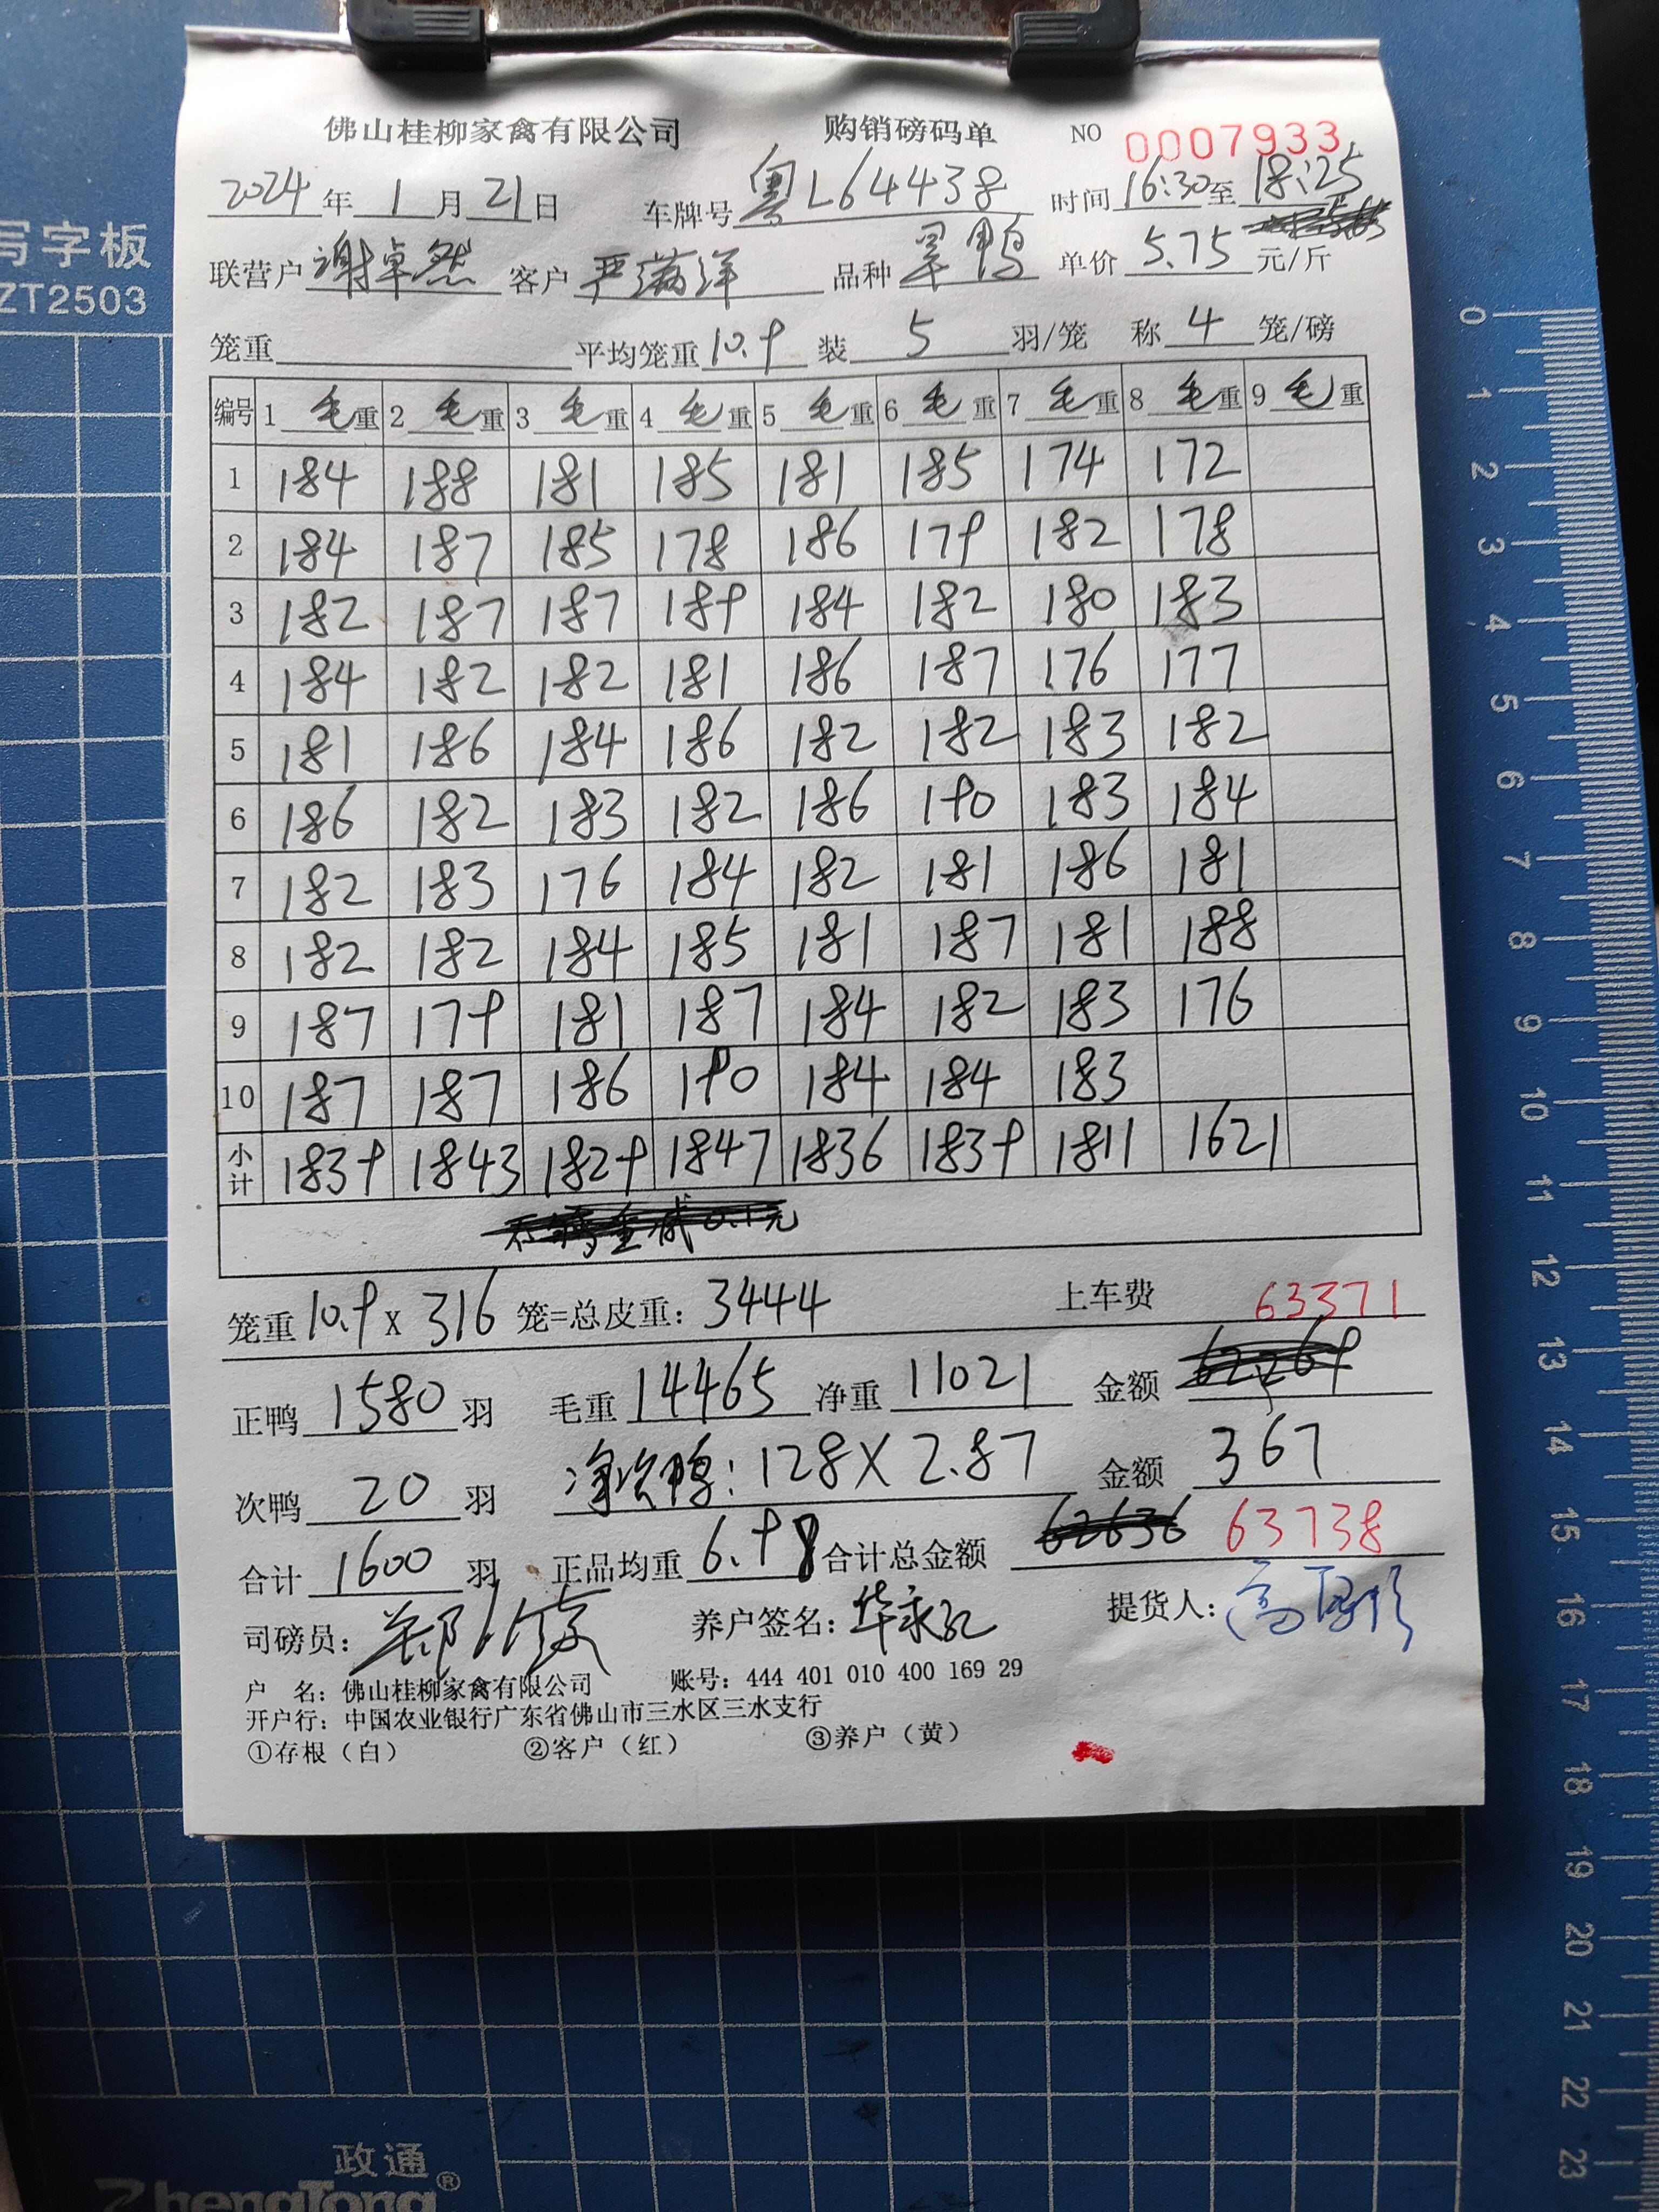 写字板
ZT2503
佛山桂柳家禽有限公司 购销磅码单 NO 0007933
2024年1月21日 车牌号粤L64438 时间16:30至18:25
联营户谢卓然 客户严满洋 品种 单价5.75元/斤
笼重 平均笼重10.9 装5羽/笼 称4笼/磅
编号 1毛重 2毛重 3毛重 4毛重 5毛重 6毛重 7毛重 8毛重 9毛重
1 184 188 181 185 181 185 174 172
2 184 187 185 178 186 179 182 178
3 182 187 187 189 184 182 180 183
4 184 182 182 181 186 187 176 177
5 181 186 184 186 182 182 183 182
6 186 182 183 182 186 190 183 184
7 182 183 176 184 182 181 186 181
8 182 182 184 185 181 187 181 188
9 187 179 181 187 184 182 183 176
10 187 187 186 190 184 184 183
小计 1839 1843 1829 1847 1836 1839 1811 1621
笼重10.9x316笼=总皮重：3444 上车费 63371
正鸭1580羽 毛重14465净重11021 金额
次鸭20羽 净次鸭：128X2.87 金额367
合计1600羽 正品均重6.98合计总金额 62636 63738
司磅员： 养户签名：华永记 提货人：
户 名：佛山桂柳家禽有限公司 账号：444 401 010 400 169 29
开户行：中国农业银行广东省佛山市三水区三水支行
①存根（白） ②客户（红） ③养户（黄）
0 1 2 3 4 5 6 7 8 9 10 11 12 13 14 15 16 17 18 19 20 21 22 23
政通
ZhengTong®